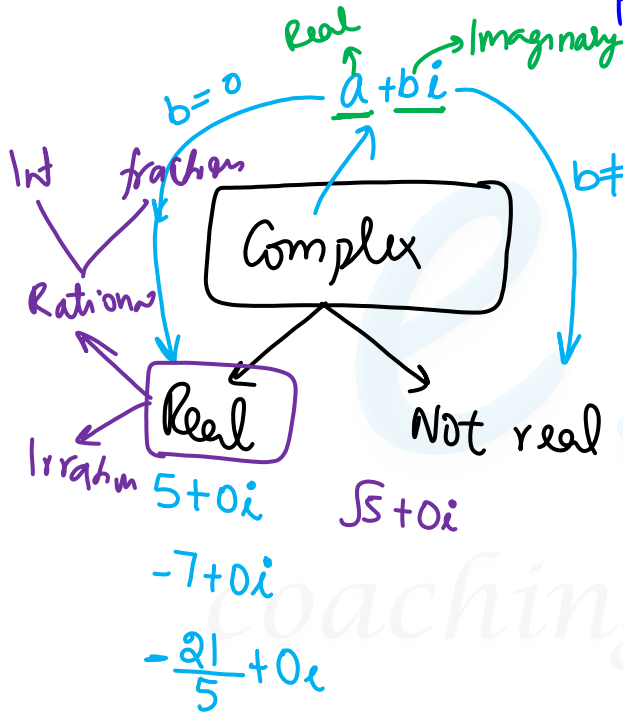 Real
Imaginary
a + bi
b = 0
b≠
Int fractions
Complex
Rationa
Real
Not real
Irration
5 + 0i
√5 + 0i
-7 + 0i
-21/5 + 0i
coaching